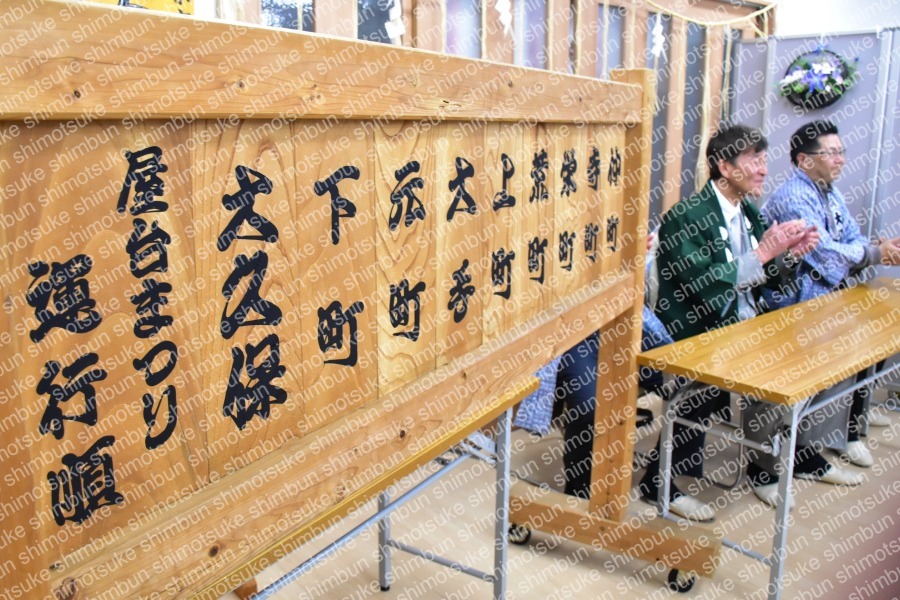 仲町
寺町
栄町
荒町
上町
大手
元町
下町
大久保
屋台まつり
運行順
shimotsuke shimbun